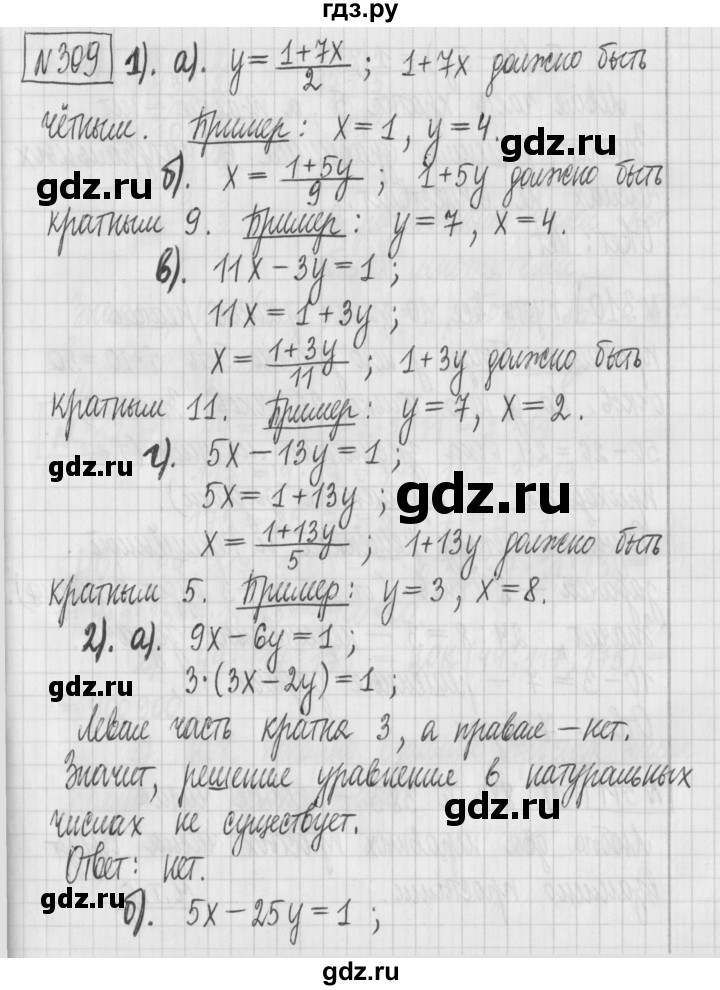 гдз.ру
№309 1). а). y = (1+7x)/2 ; 1+7x должно быть
чётным. Пример: x=1, y=4.
gdz.ru
б). x = (1+5y)/9 ; 1+5y должно быть
кратным 9. Пример: y=7, x=4.
gdz.ru
в). 11x − 3y = 1 ;
11x = 1 + 3y ;
x = (1+3y)/11 ; 1+3y должно быть
gdz.ru
кратным 11. Пример: y=7, x=2.
г). 5x − 13y = 1 ;
gdz.ru
5x = 1 + 13y ;
gdz.ru
x = (1+13y)/5 ; 1+13y должно быть
кратным 5. Пример: y=3, x=8.
2). а). 9x − 6y = 1 ;
3·(3x − 2y) = 1 ;
gdz.ru
Левая часть кратна 3, а правая – нет.
Значит, решения уравнения в натуральных
числах не существует.
gdz.ru
Ответ: нет.
gdz.ru
б). 5x − 25y = 1 ;
gdz.ru